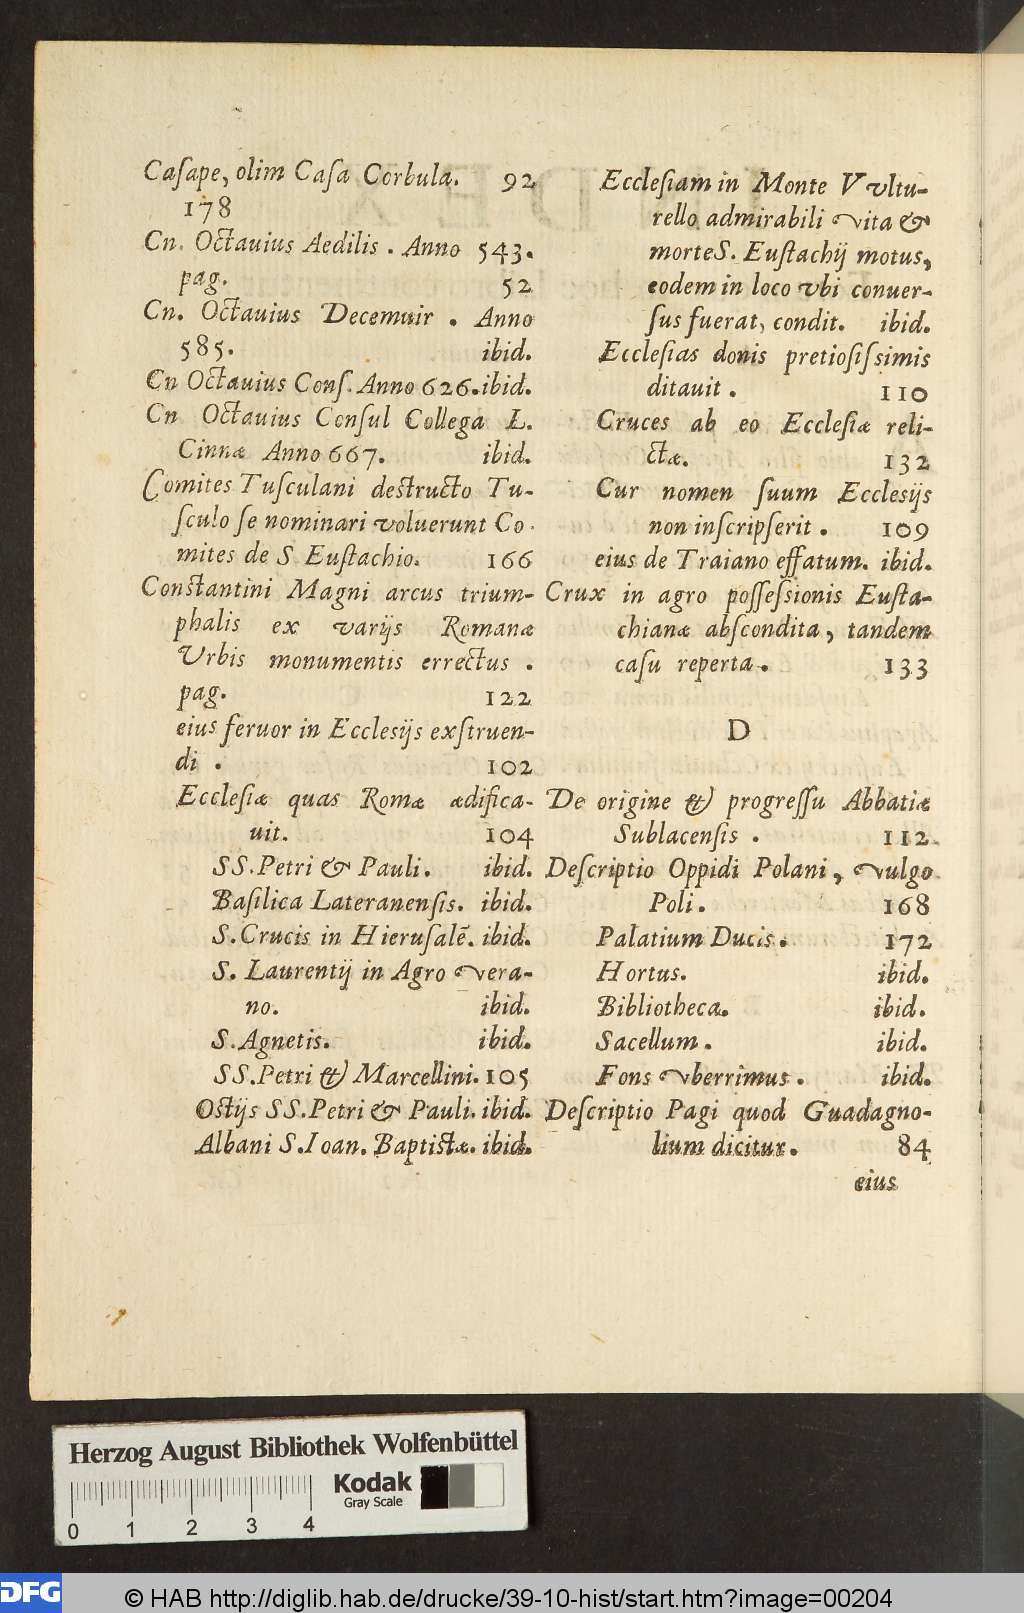 Casape, olim Casa Corbula. 92
178
Cn. Octauius Aedilis. Anno 543.
pag. 52
Cn. Octauius Decemuir. Anno
585. ibid.
Cn Octauius Cons. Anno 626. ibid.
Cn Octauius Consul Collega L.
Cinnæ Anno 667. ibid.
Comites Tusculani destructo Tu-
sculo se nominari voluerunt Co-
mites de S Eustachio. 166
Constantini Magni arcus trium-
phalis ex varijs Romanæ
Vrbis monumentis errectus.
pag. 122
eius feruor in Ecclesijs exstruen-
di. 102
Ecclesiæ quas Romæ ædifica-
uit. 104
SS. Petri & Pauli. ibid.
Basilica Lateranensis. ibid.
S. Crucis in Hierusalẽ. ibid.
S. Laurentij in Agro vera-
no. ibid.
S. Agnetis. ibid.
SS. Petri & Marcellini. 105
Ostijs SS. Petri & Pauli. ibid.
Albani S. Ioan. Baptistæ. ibid.
Ecclesiam in Monte Vvltu-
rello admirabili vita &
morte S. Eustachij motus,
eodem in loco vbi conuer-
sus fuerat, condit. ibid.
Ecclesias donis pretiosissimis
ditauit. 110
Cruces ab eo Ecclesiæ reli-
ctæ. 132
Cur nomen suum Ecclesijs
non inscripserit. 109
eius de Traiano effatum. ibid.
Crux in agro possessionis Eusta-
chianæ abscondita, tandem
casu reperta. 133
D
De origine & progressu Abbatiæ
Sublacensis. 112.
Descriptio Oppidi Polani, vulgo
Poli. 168
Palatium Ducis. 172
Hortus. ibid.
Bibliotheca. ibid.
Sacellum. ibid.
Fons vberrimus. ibid.
Descriptio Pagi quod Guadagno-
lium dicitur. 84
eius
Herzog August Bibliothek Wolfenbüttel
Kodak
Gray Scale
0 1 2 3 4
DFG
© HAB http://diglib.hab.de/drucke/39-10-hist/start.htm?image=00204